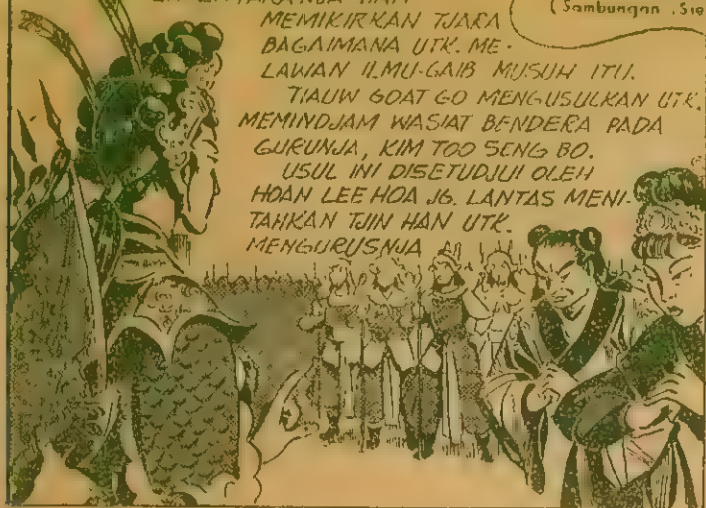 MEMIKIRKAN TJARA
BAGAIMANA UTK. ME-
LAWAN ILMU-GAIB MUSUH ITU.
TIAUW GOAT GO MENGUSULKAN UTK.
MEMINDJAM WASIAT BENDERA PADA
GURUNJA, KIM TOO SENG BO.
USUL INI DISETUDJUI OLEH
HOAN LEE HOA JG. LANTAS MENI-
TAHKAN TJIN HAN UTK.
MENGURUSNJA
(Sambungan. Sie